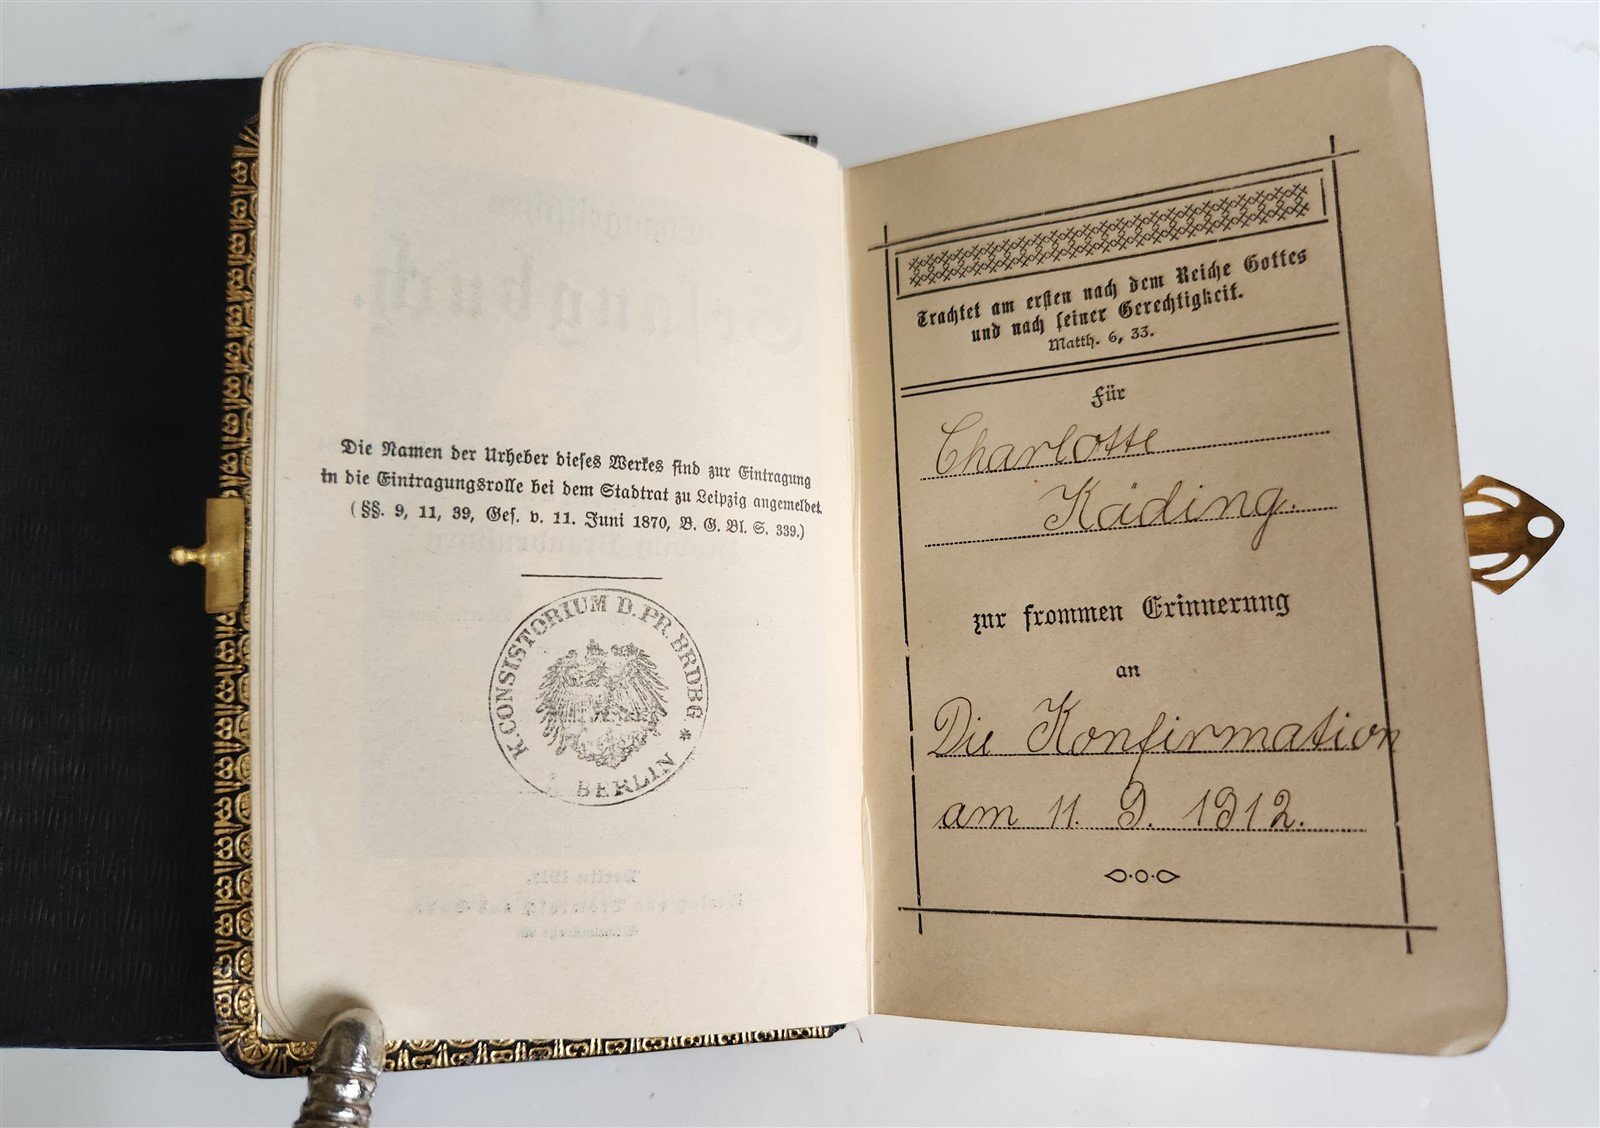 Die Namen der Urheber dieses Werkes sind zur Eintragung
in die Eintragungsrolle bei dem Stadtrat zu Leipzig angemeldet.
(§§. 9, 11, 39, Ges. v. 11. Juni 1870, B. G. Bl. S. 339.)
K. CONSISTORIUM D. PR. BRDBG. *
BERLIN
Trachtet am ersten nach dem Reiche Gottes
und nach seiner Gerechtigkeit.
Matth. 6, 33.
Für
Charlotte
Käding.
zur frommen Erinnerung
an
Die Konfirmation
am 11. 9. 1912.